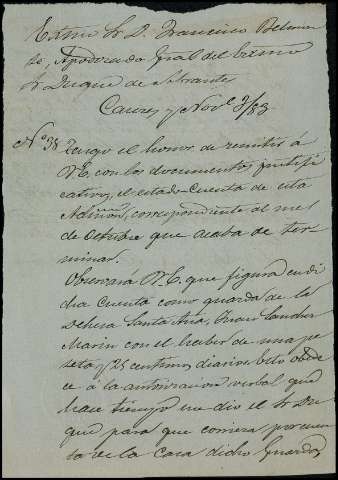 Exmo Sr D. Francisco Belmon
te, Apoderado Gral del Exmo
Sr Duque de Abrantes
Caceres y Nove 3/83
No 38 Tengo el honor de remitir á
V.E. con los documentos justifi
cativos, el estado cuenta de esta
Admon, correspondiente al mes
de Octubre que acaba de ter-
minar.
Observará V.E. que figura en di
cha cuenta como guarda de la
Dehesa Santa Ana, Juan Sanchez
Marin con el haber de una pe
seta y 25 centimos diarios. Esto obede
ce á la autorizacion verbal que
hace tiempo me dio el Sr Du
que para que corriera por cuen
ta de la casa dicho Guarda,